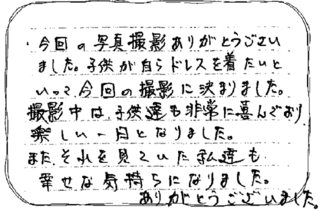 今回の写真撮影ありがとうござい
ました。子供が自らドレスを着たいと
いって、今回の撮影に決まりました。
撮影中は、子供達も非常に喜んでおり
楽しい一日となりました。
また、それを見ていた私達も
幸せな気持ちになりました。
ありがとうございました。